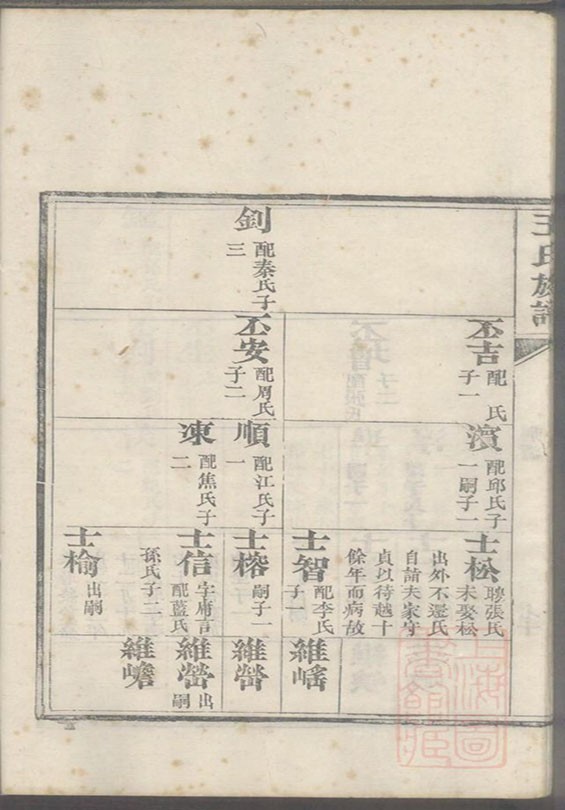 王氏族譜
丕吉 配 氏
子一
濱 配邱氏子
一嗣子一
士松 聘張氏
未娶松
出外不還氏
自請夫家守
貞以待越十
餘年而病故
士智 配李氏
子一
維嵧
釗 配秦氏子
三
丕安 配周氏
子二
順 配江氏子
一
士榕 嗣子一
維嵤
凍 配焦氏子
二
士信 字庸言
配藍氏
孫氏子二
維嵤 出
嗣
維嶦
士榆 出嗣
上海圖書館藏